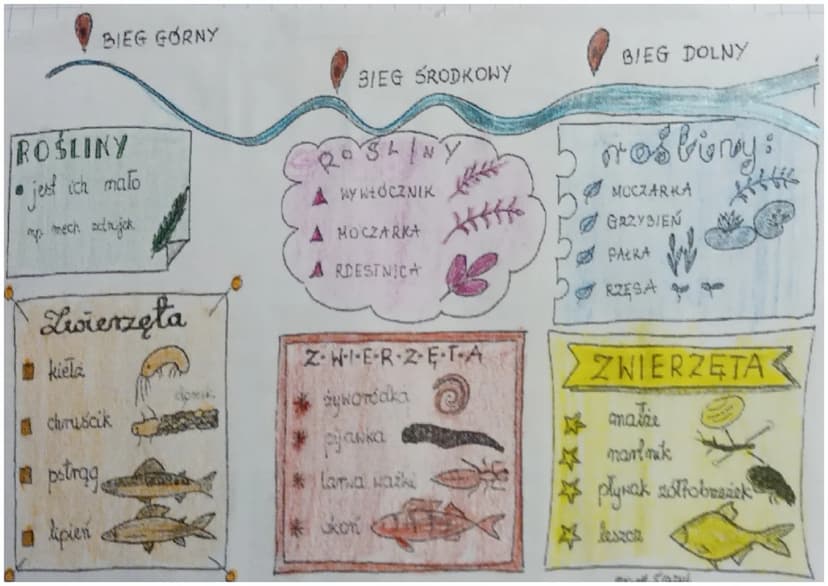 BIEG GÓRNY
BIEG ŚRODKOWY
BIEG DOLNY
ROŚLINY
• jest ich mało
np. mech zdrojek
Zwierzęta
kiełż
chruścik
domek
pstrąg
lipień
ROŚLINY
WYWŁÓCZNIK
MOCZARKA
RDESTNICA
Z·W·I·E·R·Z·Ę·T·A
żyworódka
pijawka
larwa ważki
okoń
rośliny:
MOCZARKA
GRZYBIEŃ
PAŁKA
RZĘSA
ZWIERZĘTA
małże
nartnik
pływak żółtobrzeżek
leszcz